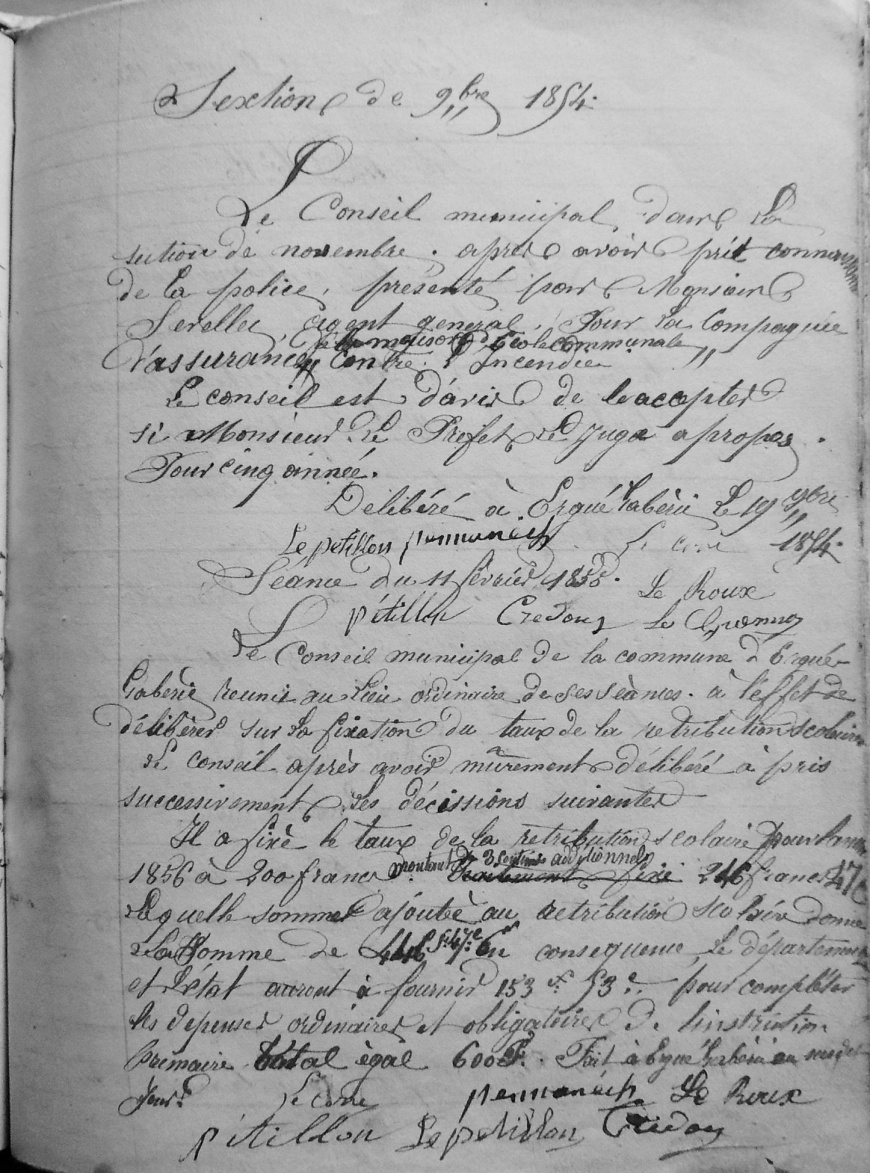 Sextion de 9bre 1854.
Le Conseil municipal, dans la
sution de novembre. apres avoir prit
de la police, présenté par Monsieur
agent general, Pour la Compagnie
de la maison d'Ecole communale
d'assurance, Contre l'Incendie
Le conseil est d'avis de le accepter
si Monsieur Le Prefet Le Juge a propos.
Pour cinq année.
Délibéré à Ergué Gabéric Le 19 9bre
Le petillon Le corre 1854.
Séance du 11 février 1855. Le Roux
pétillon Credou Le
Le Conseil municipal de la commune d'Ergué-
Gabéric reunie au lieu ordinaire de ses séances. à l'effet de
délibérer sur la fixation du taux de la retribution scolaire
Le conseil après avoir mûrement délibéré à pris
successivement les décissions suivantes
Il a fixé le taux de la retribution scolaire pour l'anné
montant de 3 centimes additionnels
1856 à 200 francs 246 francs 47c
Laquelle somme ajoutée au retribution scolaire donne
La somme de 446 f. 47c. En consequence, le département
et L'état auront à fournir 153 f. 53 c. pour compléter
les depenses ordinaires et obligatoires de l'instrution
primaire total égal 600 F. Fait à Ergué Gabéric en
jour. Le corre Le Roux
pétillon Le petillon Credou